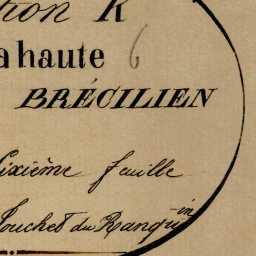 tion K
a haute 6
BRÉCILIEN
Sixième feuille
Touchet du Ranquin